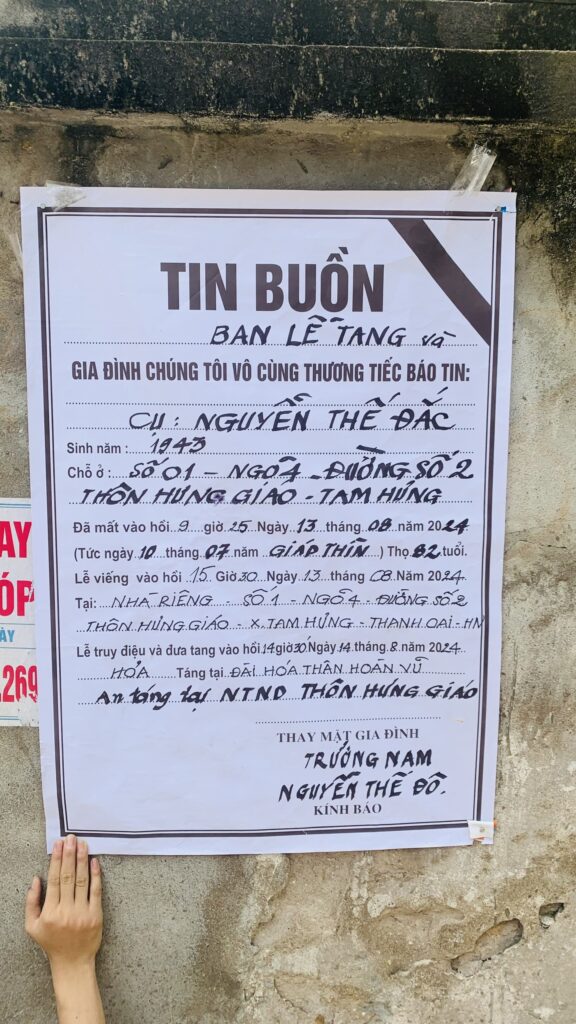 TIN BUỒN
BAN LỄ TANG và
GIA ĐÌNH CHÚNG TÔI VÔ CÙNG THƯƠNG TIẾC BÁO TIN:
CỤ : NGUYỄN THẾ ĐẮC
Sinh năm : 1943
Chỗ ở : SỐ 01 - NGÕ 4 - ĐƯỜNG SỐ 2
THÔN HƯNG GIÁO - TAM HƯNG
Đã mất vào hồi 9 giờ 25 Ngày 13 tháng 08 năm 2024
(Tức ngày 10 tháng 07 năm GIÁP THÌN) Thọ 82 tuổi.
Lễ viếng vào hồi 15 Giờ 30 Ngày 13 tháng 08 Năm 2024
Tại: NHÀ RIÊNG - SỐ 1 - NGÕ 4 - ĐƯỜNG SỐ 2
THÔN HƯNG GIÁO - X. TAM HƯNG - THANH OAI - HN
Lễ truy điệu và đưa tang vào hồi 14 giờ 30 Ngày 14 tháng 8 năm 2024
HỎA Táng tại ĐÀI HÓA THÂN HOÀN VŨ
An táng tại NTND THÔN HƯNG GIÁO
THAY MẶT GIA ĐÌNH
TRƯỞNG NAM
NGUYỄN THẾ ĐÔ.
KÍNH BÁO
AY
ÓP
ÀY
.269